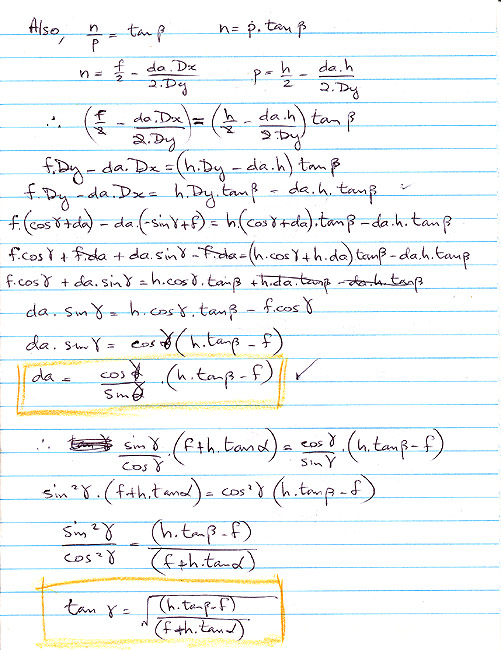 Also, n/p = tan β    n = p. tan β
n = f/2 - da.Dx/2.Dy    p = h/2 - da.h/2.Dy
∴ (f/2 - da.Dx/2.Dy) = (h/2 - da.h/2.Dy) tan β
f.Dy - da.Dx = (h.Dy - da.h) tan β
f.Dy - da.Dx = h.Dy.tan β - da.h.tan β
f.(cos γ + da) - da.(-sin γ + f) = h.(cos γ + da).tan β - da.h.tan β
f.cos γ + f.da + da.sin γ - f.da = (h.cos γ + h.da) tan β - da.h.tan β
f.cos γ + da.sin γ = h.cos γ.tan β + h.da.tan β - da.h.tan β
da.sin γ = h.cos γ.tan β - f.cos γ
da.sin γ = cos γ (h.tan β - f)
da = cos γ/sin γ .(h.tan β - f) ✓
∴ sin γ/cos γ .(f + h.tan α) = cos γ/sin γ .(h.tan β - f)
sin²γ.(f + h.tan α) = cos²γ (h.tan β - f)
sin²γ/cos²γ = (h.tan β - f)/(f + h.tan α)
tan γ = √((h.tan β - f)/(f + h.tan α))